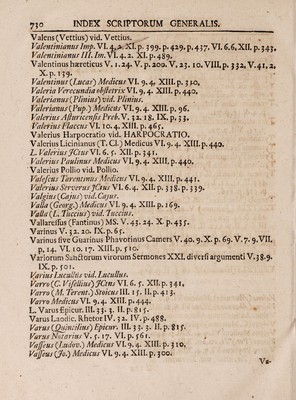 730 INDEX SCRIPTORUM GENERALIS.
Valens (Vettius) vid. Vettius.
Valentinianus Imp. VI. 4, 2. XI. p. 399. p. 429. p. 437. VI. 6. 6, XII. p. 343.
Valentinianus III. Im. VI. 4. 2. XI. p. 489.
Valentinus hæreticus V. 1. 24. V. p. 200. V. 23. 10. VIII, p. 332. V. 41, 2,
X. p. 139.
Valentinus (Lucas) Medicus VI. 9. 4. XIII. p. 310,
Valeria Verecundia obstetrix VI. 9. 4. XIII. p. 440.
Valerianus (Plinius) vid. Plinius.
Valerianus (Pup.) Medicus VI. 9. 4. XIII. p. 96.
Valerius Asturicensis Presb. V. 32. 18. IX. p. 33.
Valerius Flaccus VI. 10. 4. XIII. p. 465.
Valerius Harpocratio vid. HARPOCRATIO.
Valerius Licinianus (T. Cl.) Medicus VI. 9. 4. XIII. p. 440.
L. Valerius JCtus VI. 6. 5. XII. p. 341.
Valerius Paulinus Medicus VI. 9. 4. XIII. p. 440.
Valerius Pollio vid. Pollio.
Valescus Tarensinus Medicus VI. 9. 4. XIII. p. 441.
Valerius Serverus JCtus VI. 6. 4. XII. p. 338. p. 339.
Valgius (Cajus) vid. Cajus.
Valla (Georg.) Medicus VI. 9. 4. XIII. p. 169.
Valla (L. Tuccius) vid. Tuccius.
Vallaressus (Fantinus) MS. V. 43. 24. X. p. 435.
Varinus V. 32. 20. IX. p. 65.
Varinus sive Guarinus Phavorinus Camers V. 40. 9. X. p. 69. V. 7. 9. VII.
p, 14. VI. 10. 17. XIII. p. 510.
Variorum Sanctorum virorum Sermones XXI, diversi argumenti V. 38. 9.
IX. p. 501.
Varius Lucullus vid. Lucullus.
Varro (C. Visellius) JCtus VI. 6. 5. XII. p. 341,
Varro (M. Terent.) Stoicus III. 15. II. p. 413.
Varro Medicus VI. 9. 4. XIII. p. 444.
L. Varus Epicur. III. 33. 3. II. p. 815.
Varus Laodic. Rhetor IV. 32. IV. p. 488.
Varus (Quintilius) Epicur. III. 33. 3. II. p. 815.
Varus Notarius V. 5. 17. VI. p. 561.
Vasseus (Ludov.) Medicus VI. 9. 4. XIII. p. 310,
Vasseus (Jo.) Medicus VI. 9. 4. XIII. p. 300.
Va-